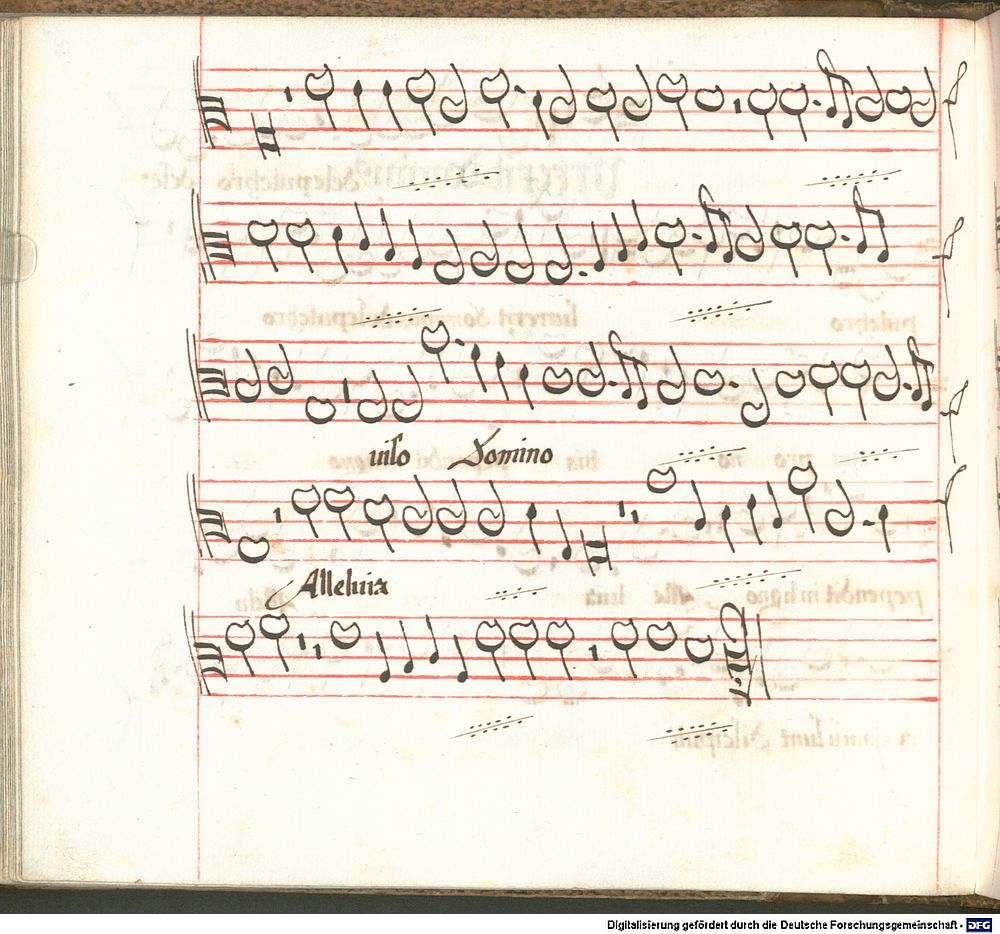 uiso Domino
Alleluia
Digitalisierung gefördert durch die Deutsche Forschungsgemeinschaft - DFG